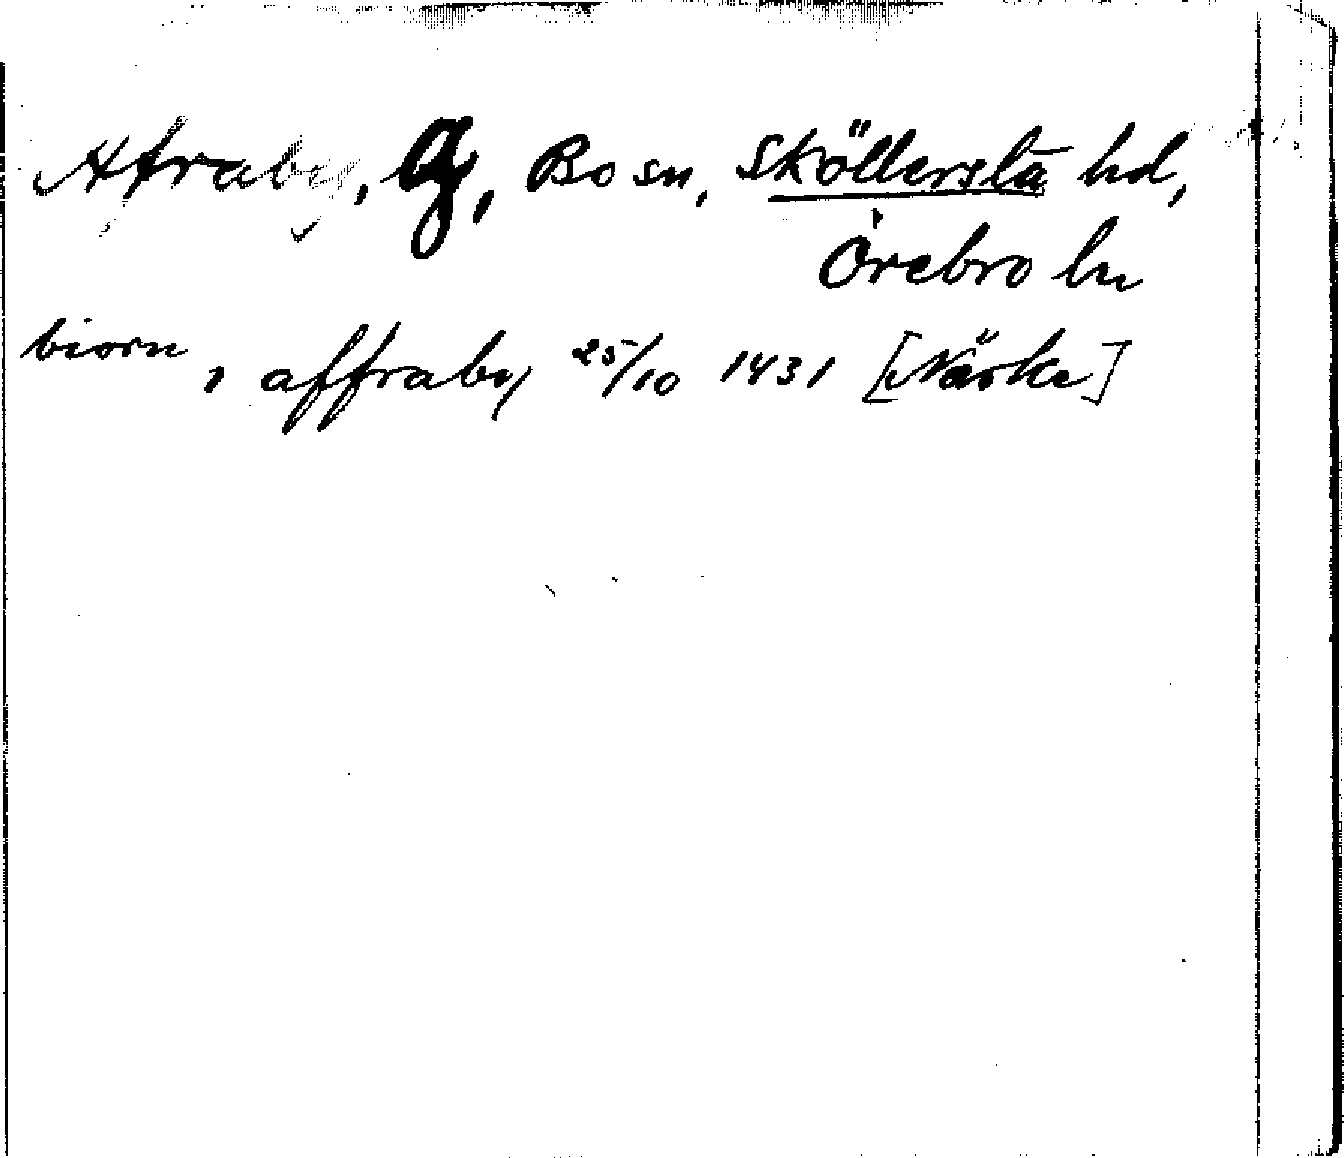 Afraby, g, Bo sn, Sköllersta hd,
Örebro ln
biorn, i affraby 25/10 1431 [Närke]